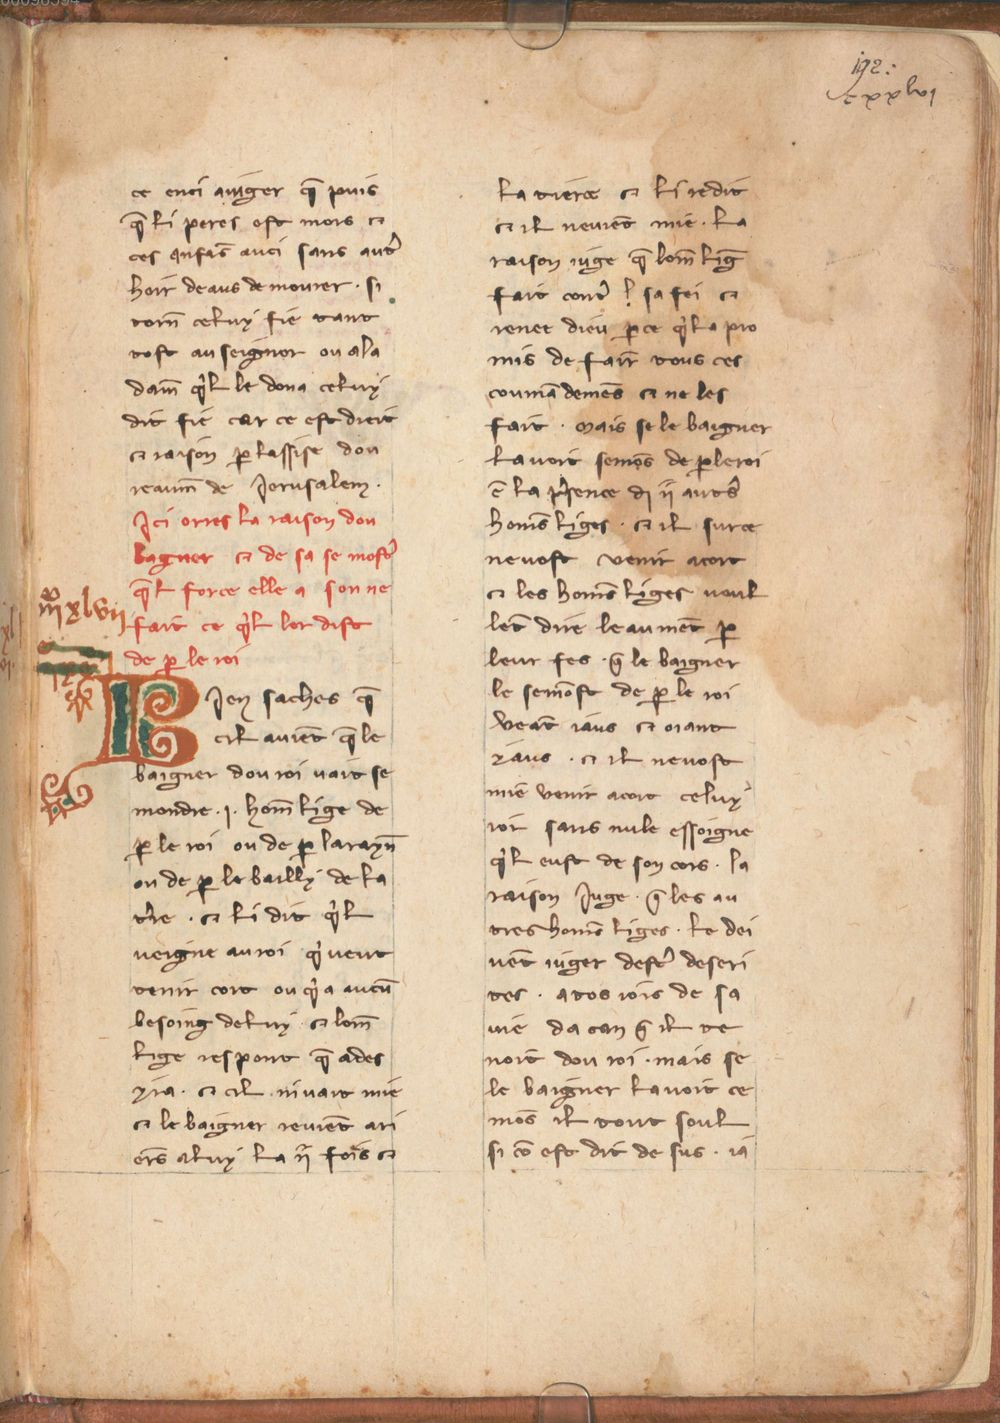 192:
cxxxlvi
ce enci aiuger q̃ puis
q̃ li peres est mors et
ces anfãs auci sans autr̉
hoir deaus demourer · si
torñ celuy fie tant
tost au seignor ou a la
dam̃ q̉l le dona celuy
dit fie car ce est dreit
et raison ꝑ lassise dou
reaum̃ de Jerusalem ·
Ici orres la raison dou
bagner et de sa semostr̉
q̃l force elle a son ne
fait ce q̉l lor dist
de ꝑ le roi
xlvii
BIen saches q̃
cil auiẽt q̃ le
baigner dou roi vait se
mondre · i · hom̃ lige de
ꝑ le roi ou de ꝑ la rayñ
ou de ꝑ le bailly de la
tr̉re · et li dit q̉l
veigne au roi q̉ veut
tenir cort ou q̉ a aucũ
besoing de luy · et lom̃
lige respont q̃ ades
yra · et cil ni vait mie
et le baigner reviẽt ari
ers̃ a luy la ii fois et
la tierce et li redit
et il ne viẽt mie · La
raison iuge q̃ lom̃ lig̃
fait contr̉ sa fei et
renee dieu ꝑ ce q̉l a pro
mis de fair̃ tous ces
coumãdemẽs et ne les
fait · mais se le baigner
lavoit semõs de ꝑ le roi
ẽ la pr̉sence d ii autr̉s
hom̃s liges · et il sur ce
ne vost venir a cort
et les hom̃s liges voul
lẽt dire leaumẽt ꝑ
leur fes · q̃ le baigner
le semõst de ꝑ le roi
veãt iaus et oiant
yaus · et il ne vost
mie venir a cort celuy
ior sans nule essoigne
q̉l eust de son cors · la
raison Juge · q̃ les au
tres hom̃s liges · le dei
vẽt iuger destr̉ deseri
tes · a tos iors de sa
vie da can q̃ il te
noit dou roi · mais se
le baigner lavoit ce
mõs il tout soul
si cõ est dit de sus · ia